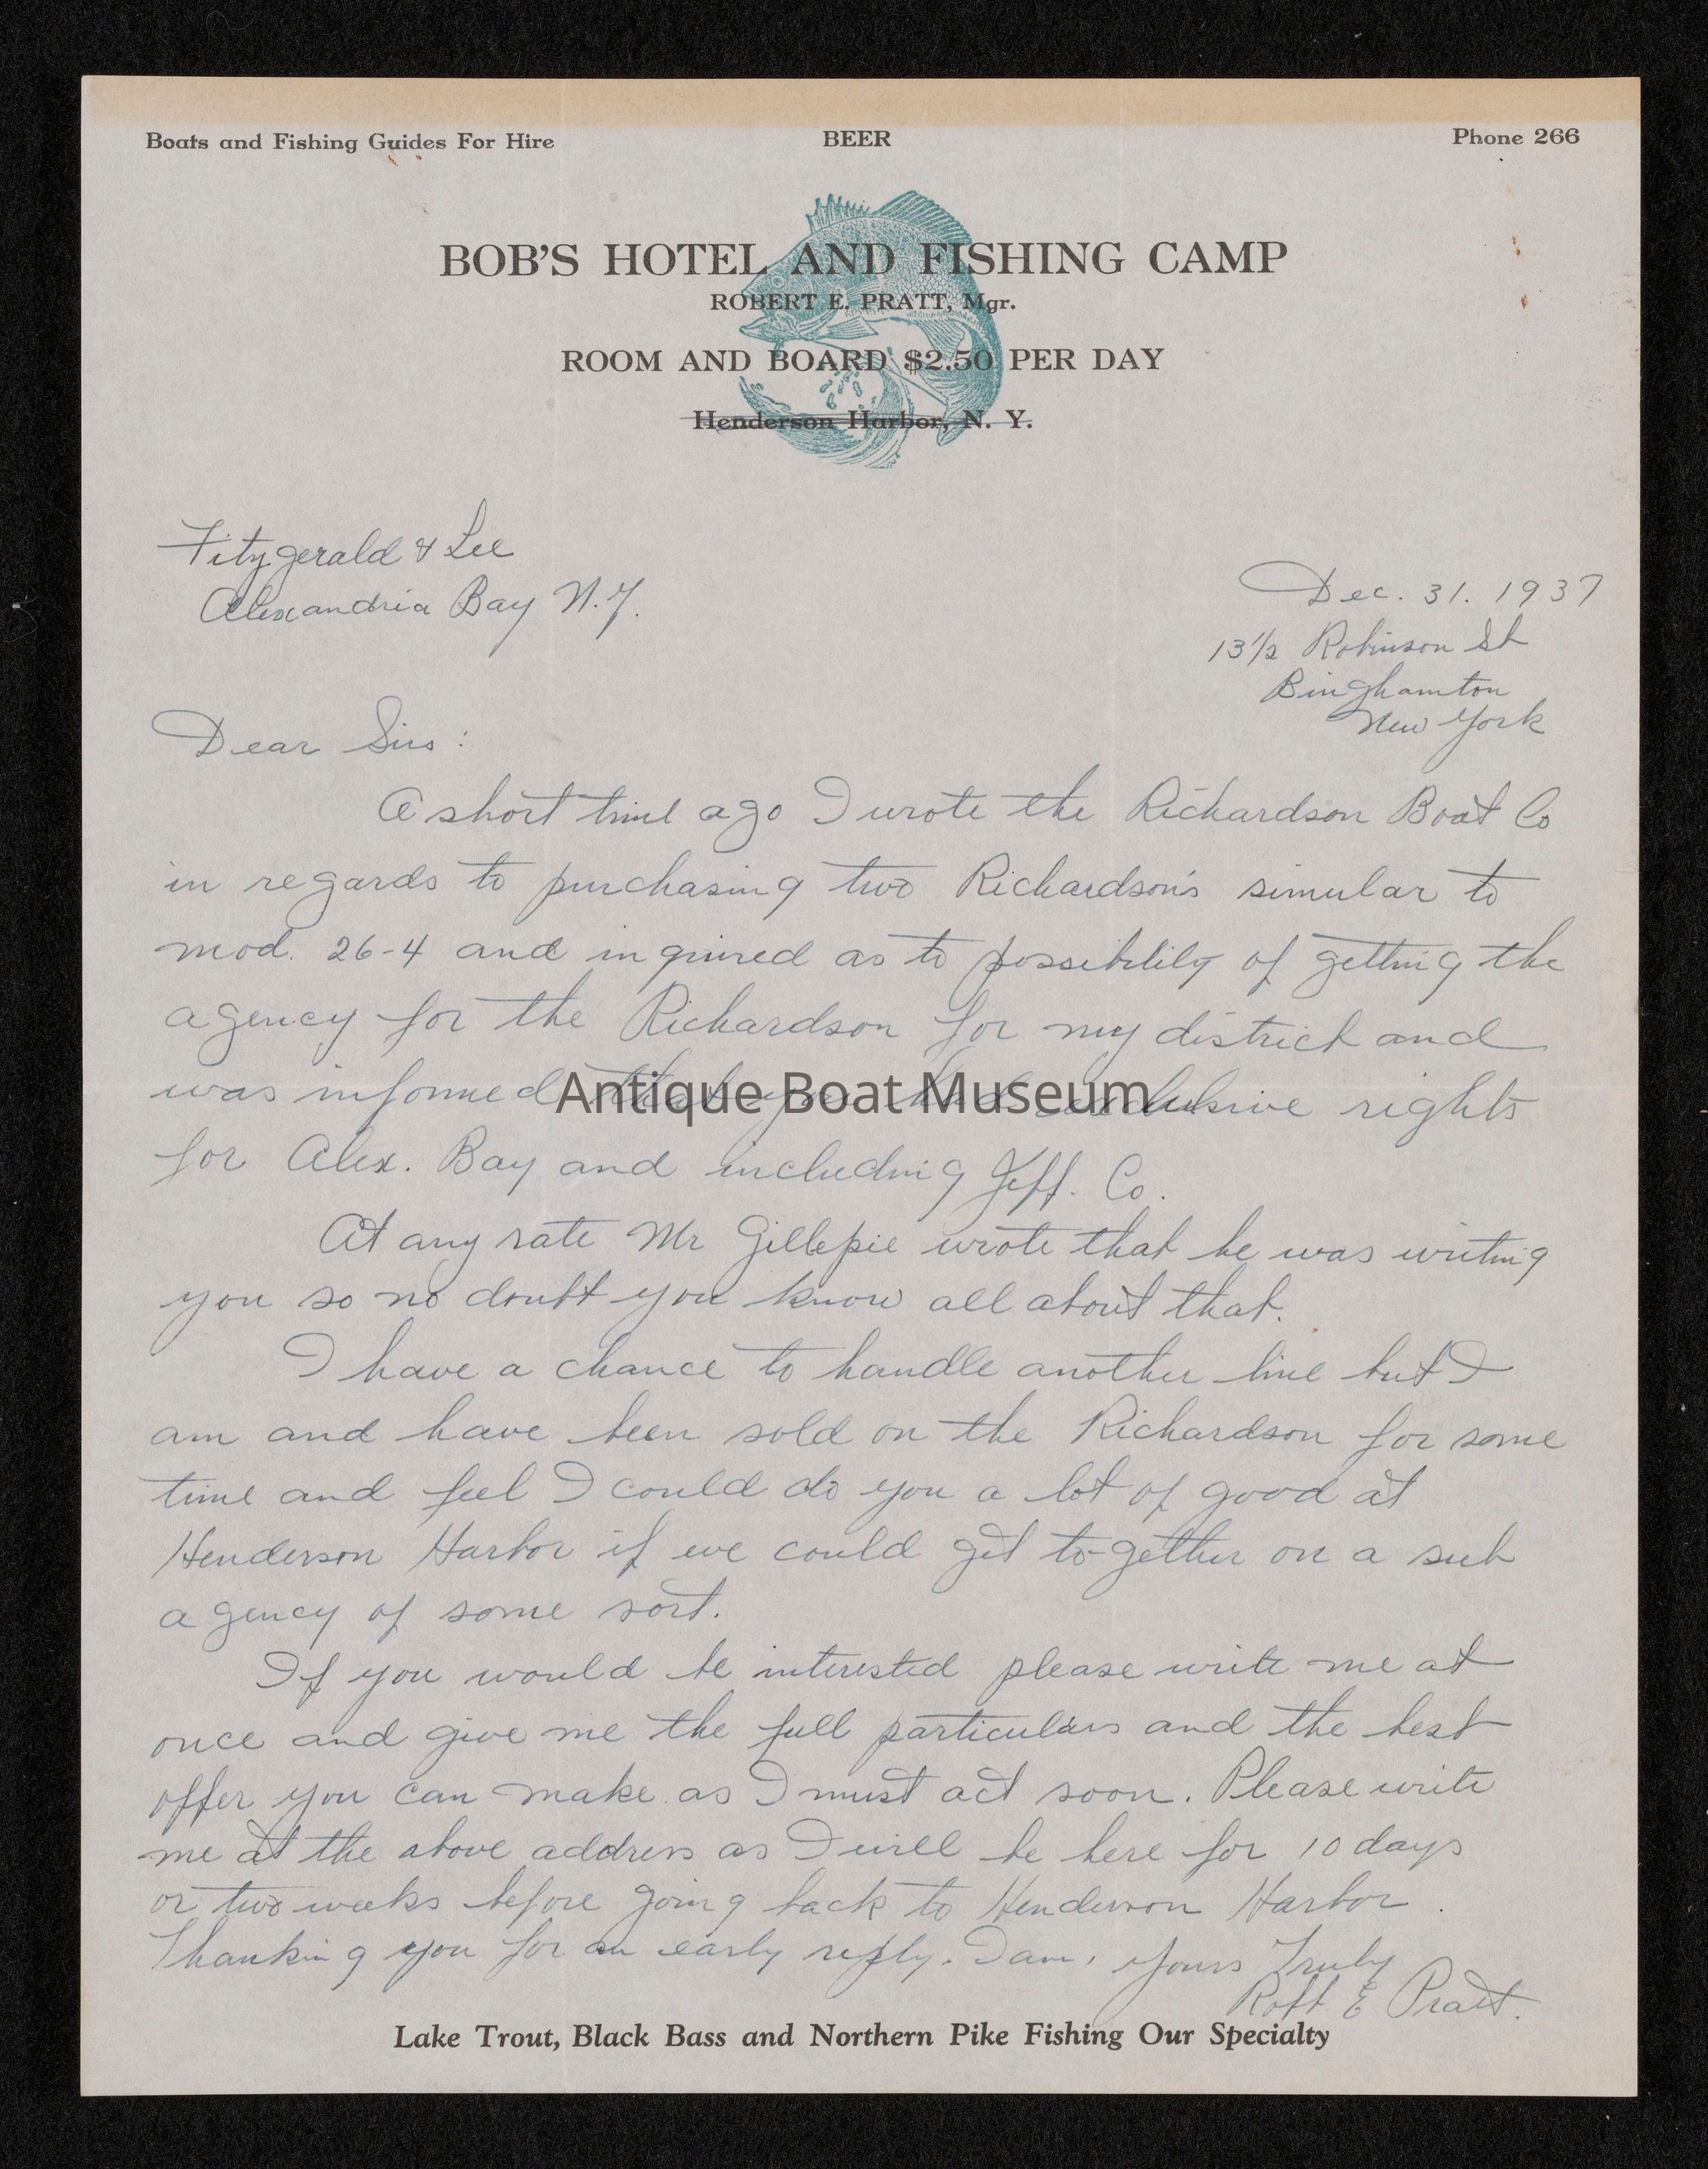 Boats and Fishing Guides For Hire
BEER
Phone 266
BOB'S HOTEL AND FISHING CAMP
ROBERT E. PRATT, Mgr.
ROOM AND BOARD $2.50 PER DAY
Henderson Harbor, N. Y.
Fitzgerald & Lee
Alexandria Bay N.Y.
Dec. 31. 1937
13 1/2 Robinson St
Binghamton
New York
Dear Sirs:
A short time ago I wrote the Richardson Boat Co
in regards to purchasing two Richardson's simular to
mod. 26-4 and inquired as to possibility of getting the
agency for the Richardson for my district and
was informed that you had exclusive rights
Antique Boat Museum
for Alex. Bay and including Jeff. Co.
At any rate Mr Gillepie wrote that he was writing
you so no doubt you know all about that.
I have a chance to handle another line but I
am and have been sold on the Richardson for some
time and feel I could do you a lot of good at
Henderson Harbor if we could get to-gether on a sub
agency of some sort.
If you would be interested please write me at
once and give me the full particulars and the best
offer you can make as I must act soon. Please write
me at the above address as I will be here for 10 days
or two weeks before going back to Henderson Harbor.
Thanking you for an early reply. I am, Yours Truly
Robt E Pratt.
Lake Trout, Black Bass and Northern Pike Fishing Our Specialty